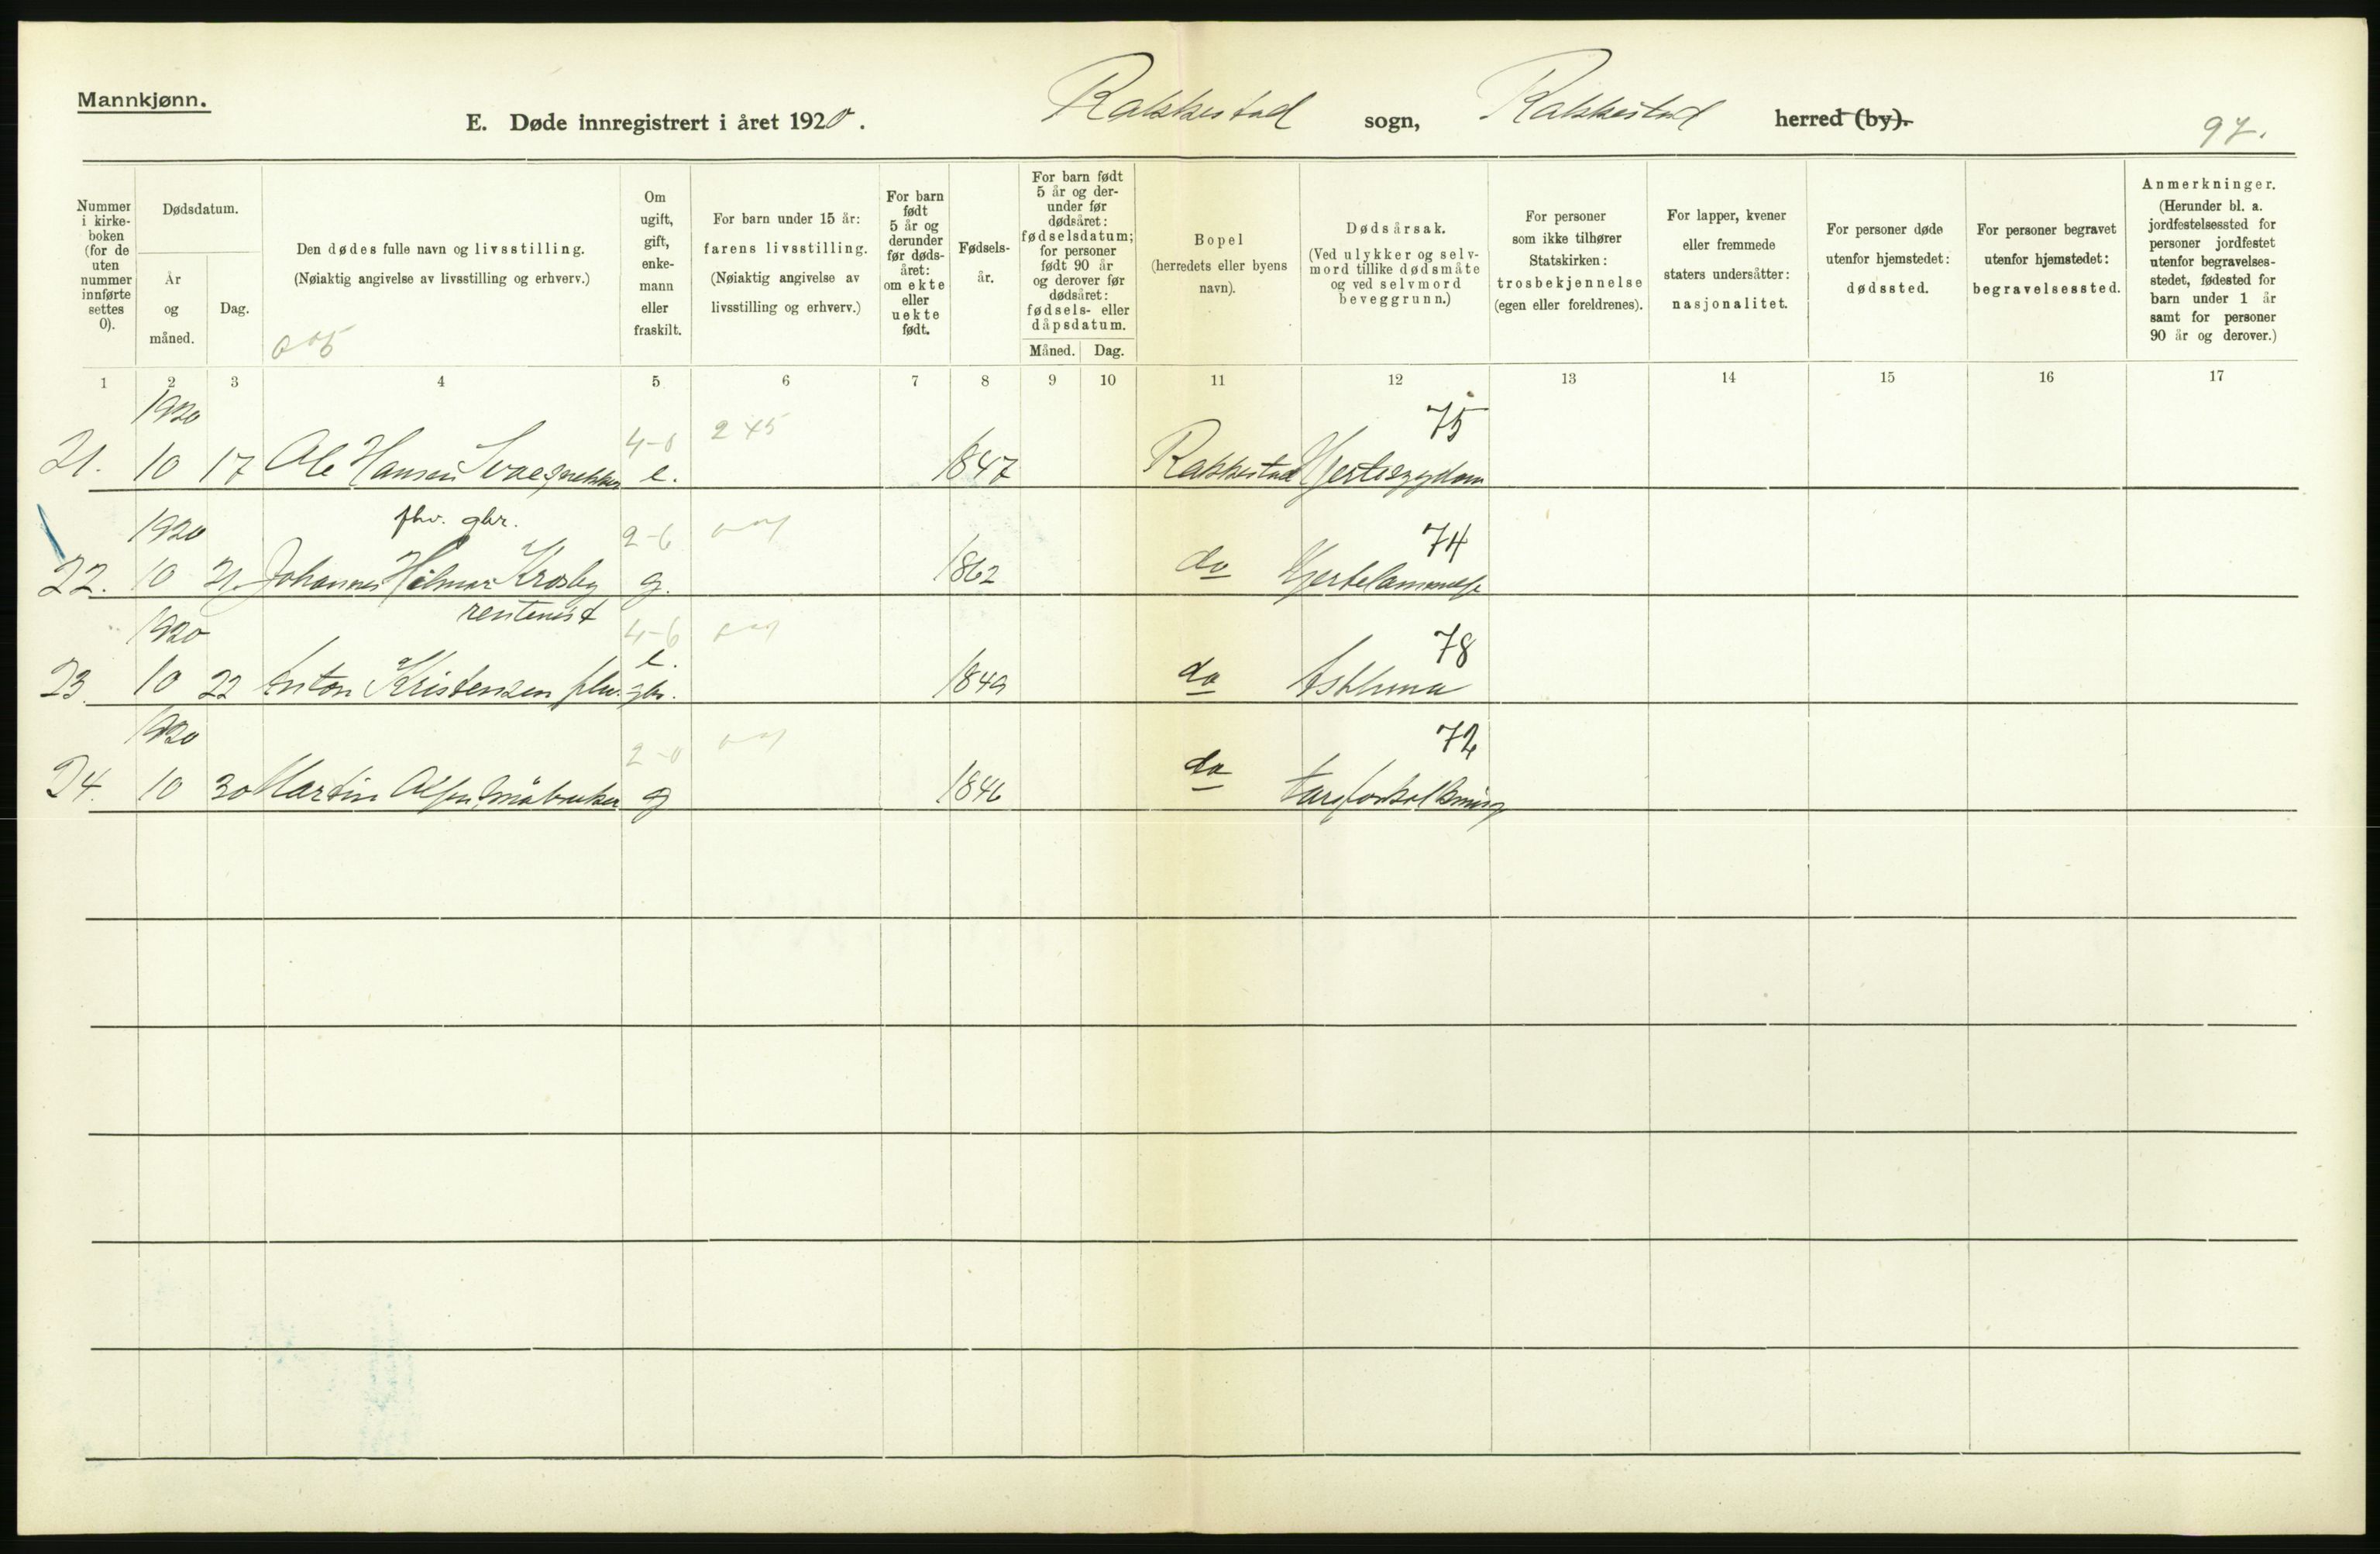 Mannkjønn.
E. Døde innregistrert i året 1920.
Rakkestad sogn, Rakkestad herred (by).
97.
Nummer i kirkeboken (for de uten nummer innførte settes 0).
Dødsdatum.
År og måned.
Dag.
Den dødes fulle navn og livsstilling.
(Nøiaktig angivelse av livsstilling og erhverv.)
Om ugift, gift, enkemann eller fraskilt.
For barn under 15 år:
farens livsstilling.
(Nøiaktig angivelse av livsstilling og erhverv.)
For barn født 5 år og derunder før dødsåret: om ekte eller uekte født.
Fødselsår.
For barn født 5 år og derunder før dødsåret: fødselsdatum; for personer født 90 år og derover før dødsåret: fødsels- eller dåpsdatum.
Måned. Dag.
Bopel
(herredets eller byens navn).
Dødsårsak.
(Ved ulykker og selvmord tillike dødsmåte og ved selvmord beveggrunn.)
For personer som ikke tilhører Statskirken: trosbekjennelse (egen eller foreldrenes).
For lapper, kvener eller fremmede staters undersåtter: nasjonalitet.
For personer døde utenfor hjemstedet: dødssted.
For personer begravet utenfor hjemstedet: begravelsessted.
Anmerkninger.
(Herunder bl. a. jordfestelsessted for personer jordfestet utenfor begravelsesstedet, fødested for barn under 1 år samt for personer 90 år og derover.)
1 2 3 4 5 6 7 8 9 10 11 12 13 14 15 16 17
1920 4-0 245 75
21. 10 17 Ole Hansen e. 1847 Rakkestad Hjertesygdom
1920 fhv. gbr. 2-6 74
22. 10 21. Johannes Hilmar Krosby g. 1862 do Hjertelammelse
rentenist
1920 4-6 e. 78
23. 10 22 Anton Kristensen fhv. gbr. 1849 do Asthma
1920 2-0 72
24. 10 30 Martin Olsen, småbruker g 1846 do